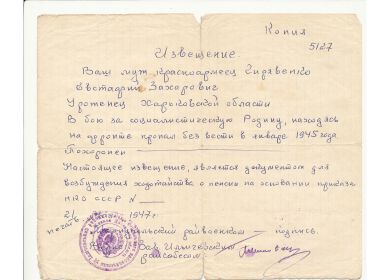 Копия
5127
Извещение
Ваш муж красноармеец Гирявенко
Евстафий Захарович
Уроженец Харьковской области
В бою за социалистическую Родину, находясь
на фронте пропал без вести в январе 1945 года
Похоронен
Настоящее извещение, является документом для
возбуждения ходатайства о пенсии на основании приказа
НКО СССР №
21 1947 г.
печать райвоенком подпись.
Зав Ильичевским
райсобесом